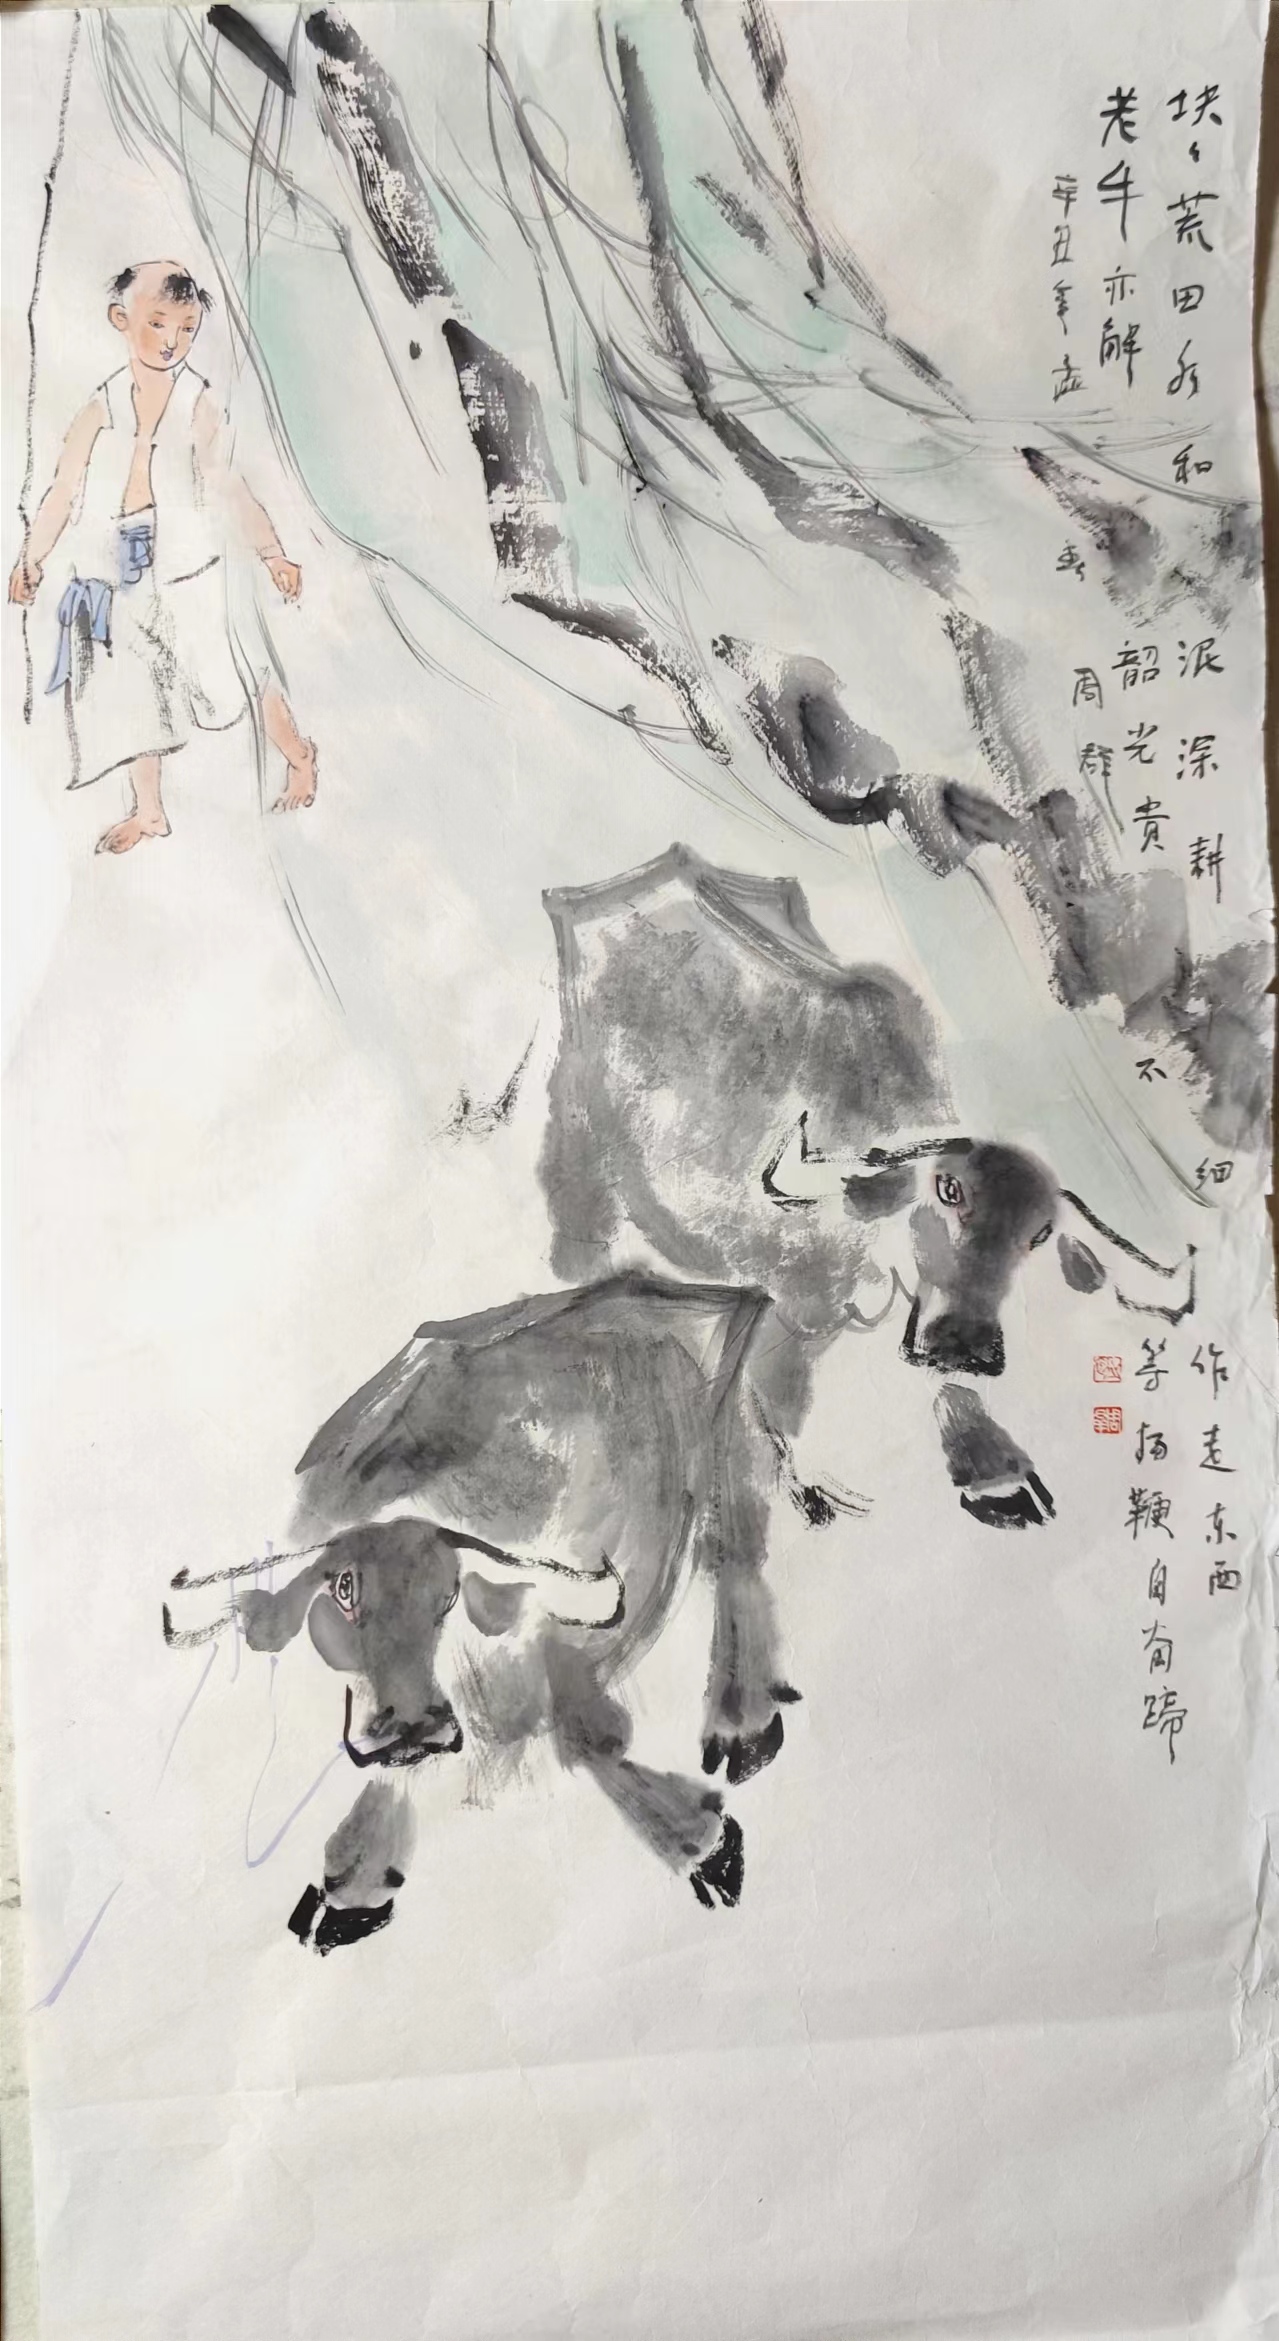 块々荒田水和泥深耕细作走东西
老牛亦解韶光贵不等扬鞭自奋蹄
辛丑年孟春周群